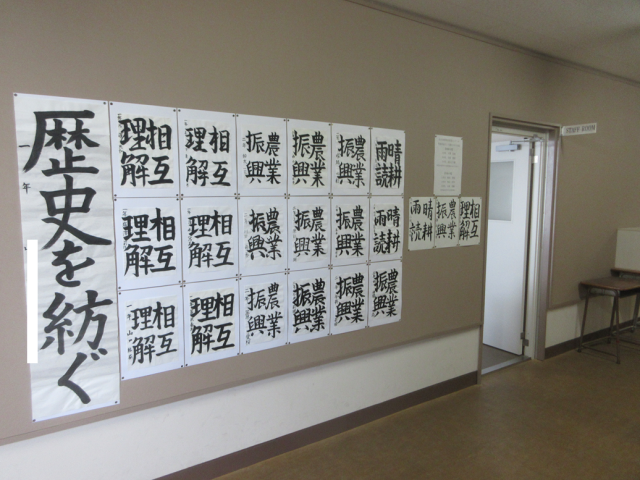 歴史を紡ぐ
一年
相互
理解
相互
理解
農業
振興
農業
振興
農業
振興
晴耕
雨読
相互
理解
相互
理解
農業
振興
農業
振興
農業
振興
晴耕
雨読
相互
理解
相互
理解
農業
振興
農業
振興
農業
振興
農業
振興
晴耕
雨読
農業
振興
相互
理解
STAFF ROOM